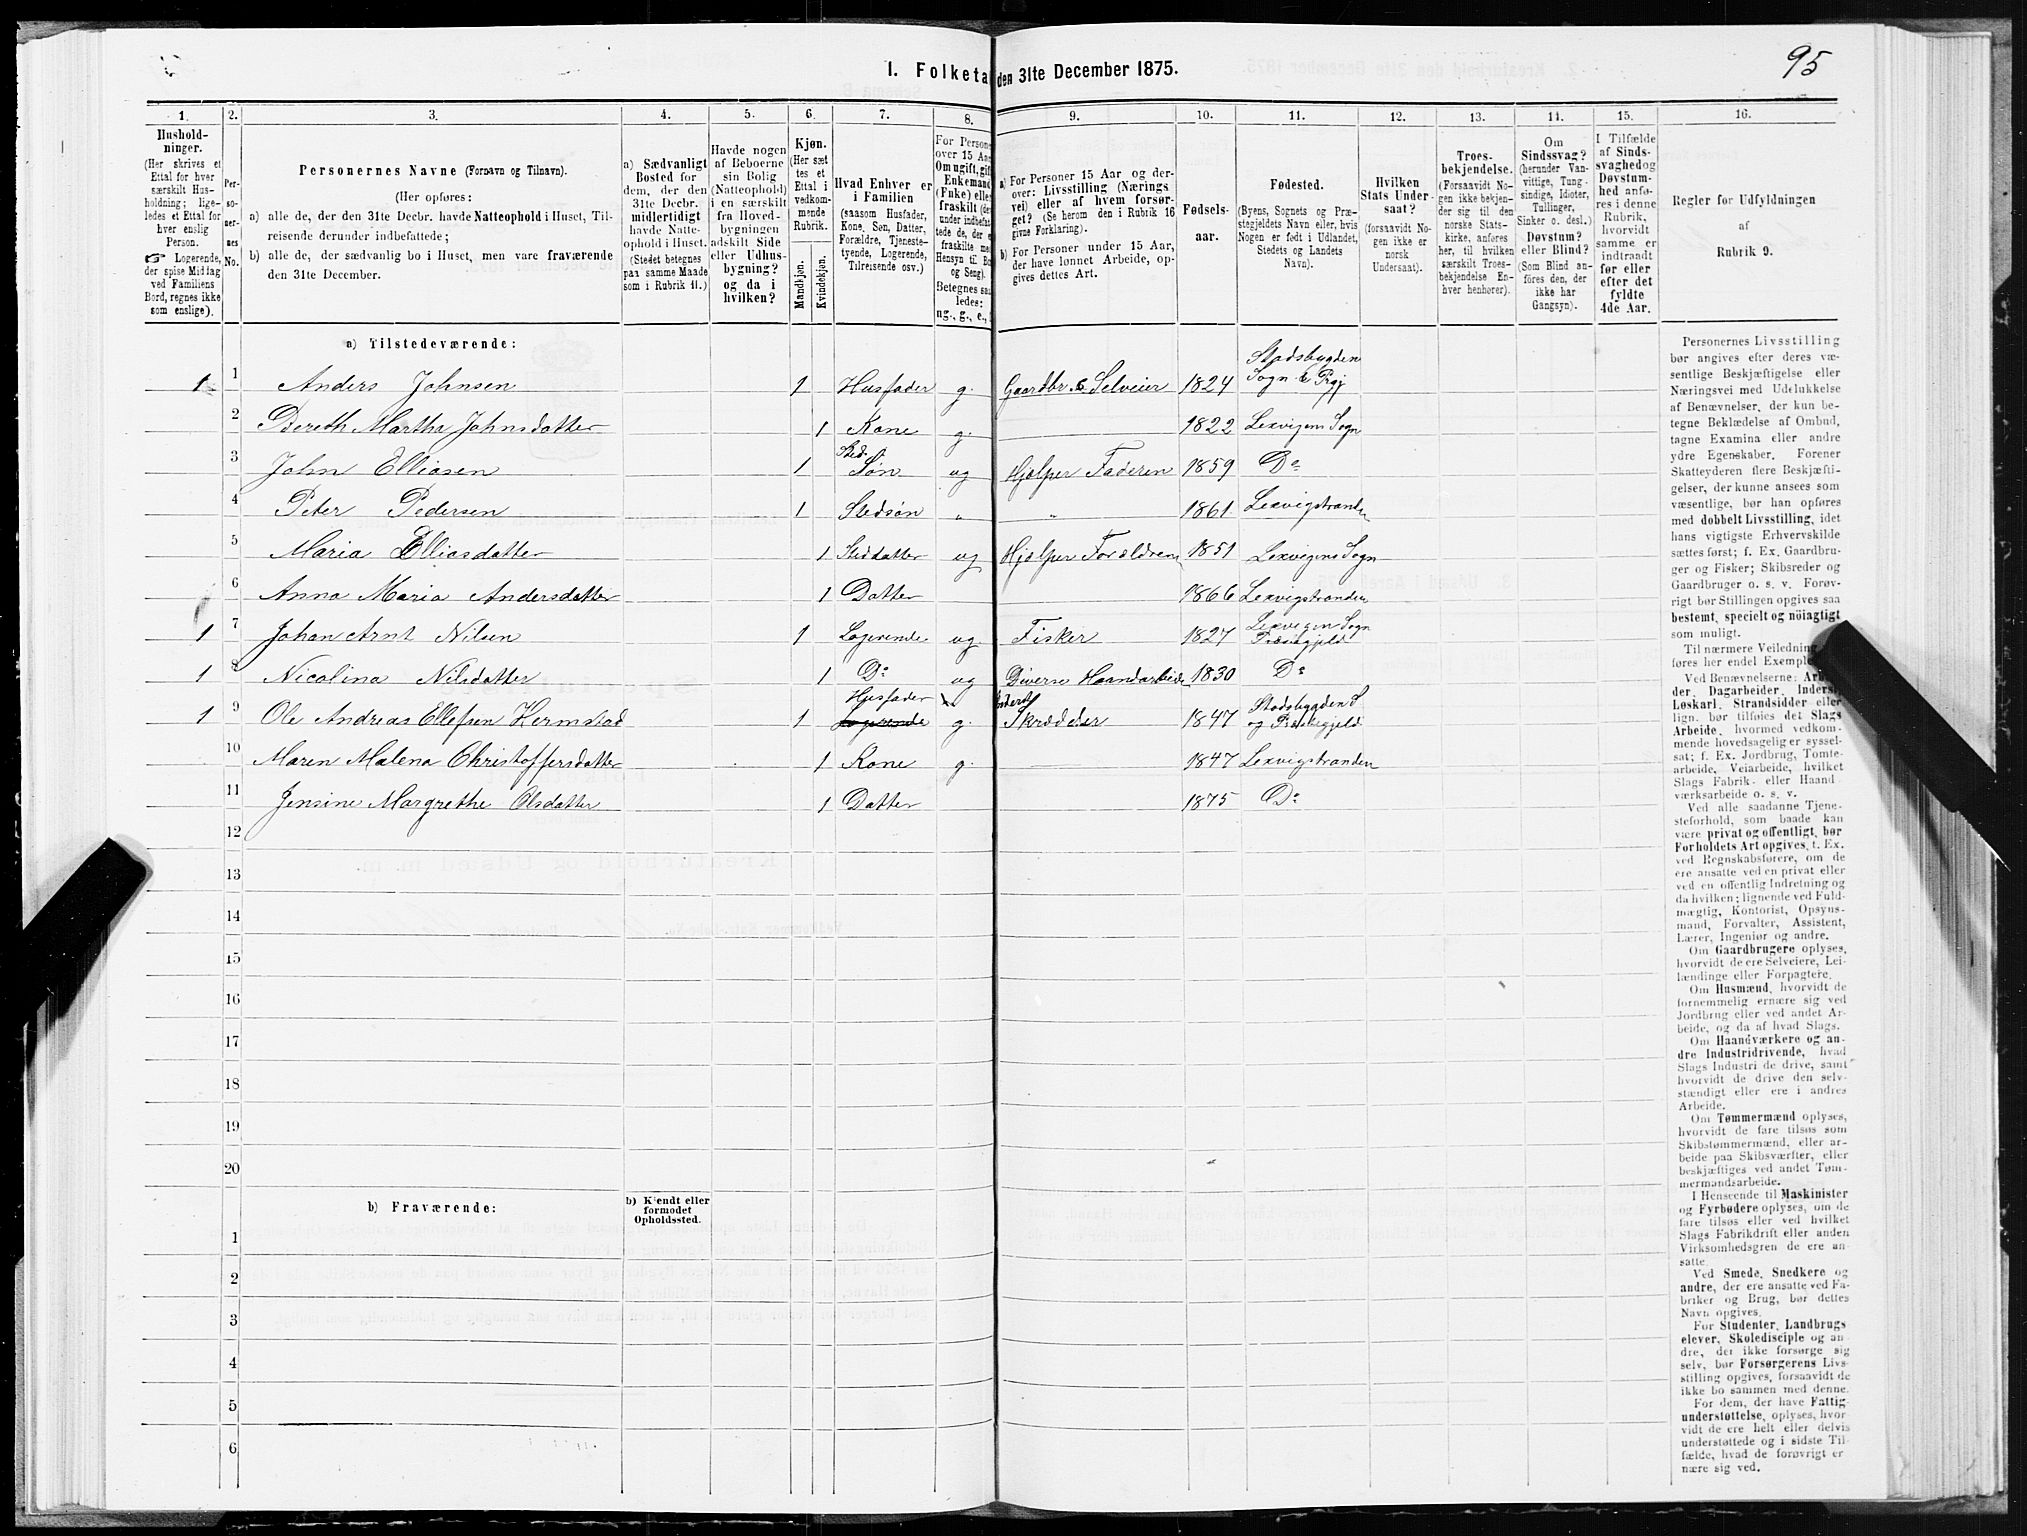 95
I. Folketa den 31te December 1875.
1. 2. 3. 4. 5. 6. 7. 8. 9. 10. 11. 12. 13. 14. 15. 16.
Hushold-
ninger.
(Her skrives et
Ettal for hver
særskilt Hus-
holdning; lige-
ledes et Ettal for
hver enslig
Person.
☞ Logerende,
der spise Middag
ved Familiens
Bord, regnes ikke
som enslige).
Per-
so-
ner-
nes
No.
Personernes Navne (Fornavn og Tilnavn).
(Her opføres:
a) alle de, der den 31te Decbr. havde Natteophold i Huset, Til-
reisende derunder indbefattede;
b) alle de, der sædvanlig bo i Huset, men vare fraværende
den 31te December.
a) Sædvanligt
Bosted for
dem, der den
31te Decbr.
midlertidigt
havde Natte-
ophold i Huset.
(Stedet betegnes
paa samme Maade
som i Rubrik 11.)
Havde nogen
af Beboerne
sin Bolig
(Natteophold)
i en særskilt
fra Hoved-
bygningen
adskilt Side
eller Udhus-
bygning?
og da i
hvilken?
Kjøn.
(Her sæt
tes et
Ettal i
vedkom-
mende
Rubrik.
Mandkjøn.
Kvindekjøn.
Hvad Enhver er
i Familien
(saasom Husfader,
Kone, Søn, Datter,
Forældre, Tjeneste-
tyende, Logerende,
Tilreisende osv.).
For Persone
over 15 Aa
Om ugift, gift
Enkemand
(Fnke) elle
fraskilt (de
under indbefat
tede de, der e
fraskilte me
Hensyn til Bo
og Seng).
Betegnes saa
ledes:
ug., g., e.,
a) For Personer 15 Aar og der-
over: Livsstilling (Nærings
vei) eller af hvem forsør-
get? (Se herom den i Rubrik 16
givne Forklaring).
b) For Personer under 15 Aar,
der have lønnet Arbeide, op-
gives dettes Art.
Fødsels-
aar.
Fødested.
(Byens, Sognets og Præ-
stegjeldets Navn eller, hvis
Nogen er født i Udlandet,
Stedets og Landets
Navn).
Hvilken
Stats Under-
saat?
(forsaavidt No-
gen ikke er
norsk
Undersaat).
Troes-
bekjendelse.
(Forsaavidt No-
gen ikke bekjen-
der sig til den
norske Stats-
kirke, anføres
her, til hvilken
særskilt Troes-
bekjendelse En-
hver henhører).
Om
Sindssvag?
(herunder Van-
vittige, Tung-
sindige, Idioter,
Tullinger,
Sinker o. desl.)
Døvstum?
eller Blind?
(Som Blind an-
føres den, der
ikke har
Gangsyn).
I Tilfælde
af Sinds-
svaghed og
Døvstum-
hed anfø-
res i denne
Rubrik,
hvorvidt
samme er
indtraadt
før eller
efter det
fyldte
4de Aar.
Regler for Udfyldningen
af
Rubrik 9.
a) Tilstedeværende:
1 1 Anders Johnsen 1 Husfader g. Gaardbr & Selveier 1824 Stadsbygden Sogn & Prgj
2 Bereth Martha Johnsdatter 1 Kone g. 1822 Lexvigens Sogn
3 John Elliasen 1 Sted Søn ug Hjelper Faderen 1859 Do
4 Peter Pedersen 1 Stedsøn „ „ 1861 Lexvigstranden
5 Maria Elliasdatter 1 Steddatter ug Hjelper Forældrene 1851 Lexvigens Sogn
6 Anna Maria Andersdatter 1 Datter 1866 Lexvigstranden
1 7 Johan Arnt Nilsen 1 Logerende ug Fisker 1827 Lexvigen Sogn Præstegjeld
1 8 Nicolina Nilsdatter 1 Do ug Diverse Haandarbeide 1830 Do
1 9 Ole Andreas Ellefsen Hermstad 1 Husfader Logerende g. Skrædder 1847 Stadsbygden S og Præstegjeld
10 Maren Malena Christoffersdatter 1 Kone g. 1847 Lexvigstranden
11 Jensine Margrethe Olsdatter 1 Datter 1875 Do
12
13
14
15
16
17
18
19
20
b) Fraværende:
b) Kjendt eller
formodet
Opholdssted.
1
2
3
4
5
6
Personernes Livsstilling
bør angives efter deres væ-
sentlige Beskjæftigelse eller
Næringsvei med Udelukkelse
af Benævnelser, der kun be-
tegne Beklædelse af Ombud,
tagne Examina eller andre
ydre Egenskaber. Forener
Skatteyderen flere Beskjæfti-
gelser, der kunne ansees som
væsentlige, bør han opføres
med dobbelt Livsstilling, idet
hans vigtigste Erhvervskilde
sættes først; f. Ex. Gaardbru-
ger og Fisker; Skibsreder og
Gaardbruger o. s. v. Forøv-
rigt bør Stillingen opgives saa
bestemt, specielt og nöiagtigt
som muligt.
Til nærmere Veiledning
føres her endel Exempl
Ved Benævnelserne: Arb
der, Dagarbeider, Inders
Løskarl, Strandsidder eller
lign. bør tilføies det Slags
Arbeide, hvormed vedkom-
mende hovedsagelig er syssel-
sat; f. Ex. Jordbrug, Tomte-
arbeide, Veiarbeide, hvilket
Slags Fabrik- eller Haand-
værksarbeide o. s. v.
Ved alle saadanne Tjene-
steforhold, som baade kan
være privat og offentligt, bør
Forholdets Art opgives, t. Ex.
ved Regnskabsførere, om de
ere ansatte ved en privat eller
ved en offentlig Indretning og
da hvilken; lignende ved Fuld-
mægtig, Kontorist, Opsyns-
mand, Forvalter, Assistent,
Lærer, Ingeniør og andre.
Om Gaardbrugere oplyses,
hvorvidt de ere Selveiere, Lei-
lændinge eller Forpagtere.
Om Husmænd, hvorvidt de
fornemmelig ernære sig ved
Jordbrug eller ved andet Ar-
beide, og da af hvad Slags.
Om Haandværkere og an-
dre Industridrivende, hvad
Slags Industri de drive, samt
hvorvidt de drive den selv-
stændigt eller ere i andres
Arbeide.
Om Tømmermænd oplyses,
hvorvidt de fare tilsøs som
Skibstømmermænd, eller ar-
beide paa Skibsværfter, eller
beskjæftiges ved andet Tøm-
mermandsarbeide.
I Henseende til Maskinister
og Fyrbødere oplyses, om de
fare tilsøs eller ved hvilket
Slags Fabrikdrift eller anden
Virksomhedsgren de ere an-
satte.
Ved Smede, Snedkere og
andre, der ere ansatte ved Fa-
briker og Brug, bør dettes
Navn opgives.
For Studenter, Landbrugs-
elever, Skoledisciple og an-
dre, der ikke forsørge sig
selv, bør Forsørgerens Livs-
stilling opgives, forsaavidt de
ikke bo sammen med denne.
For dem, der have Fattig-
understøttelse, oplyses, hvor-
vidt de ere helt eller delvis
understøttede og i sidste Til-
fælde, hvad de forøvrigt er
nære sig ved.